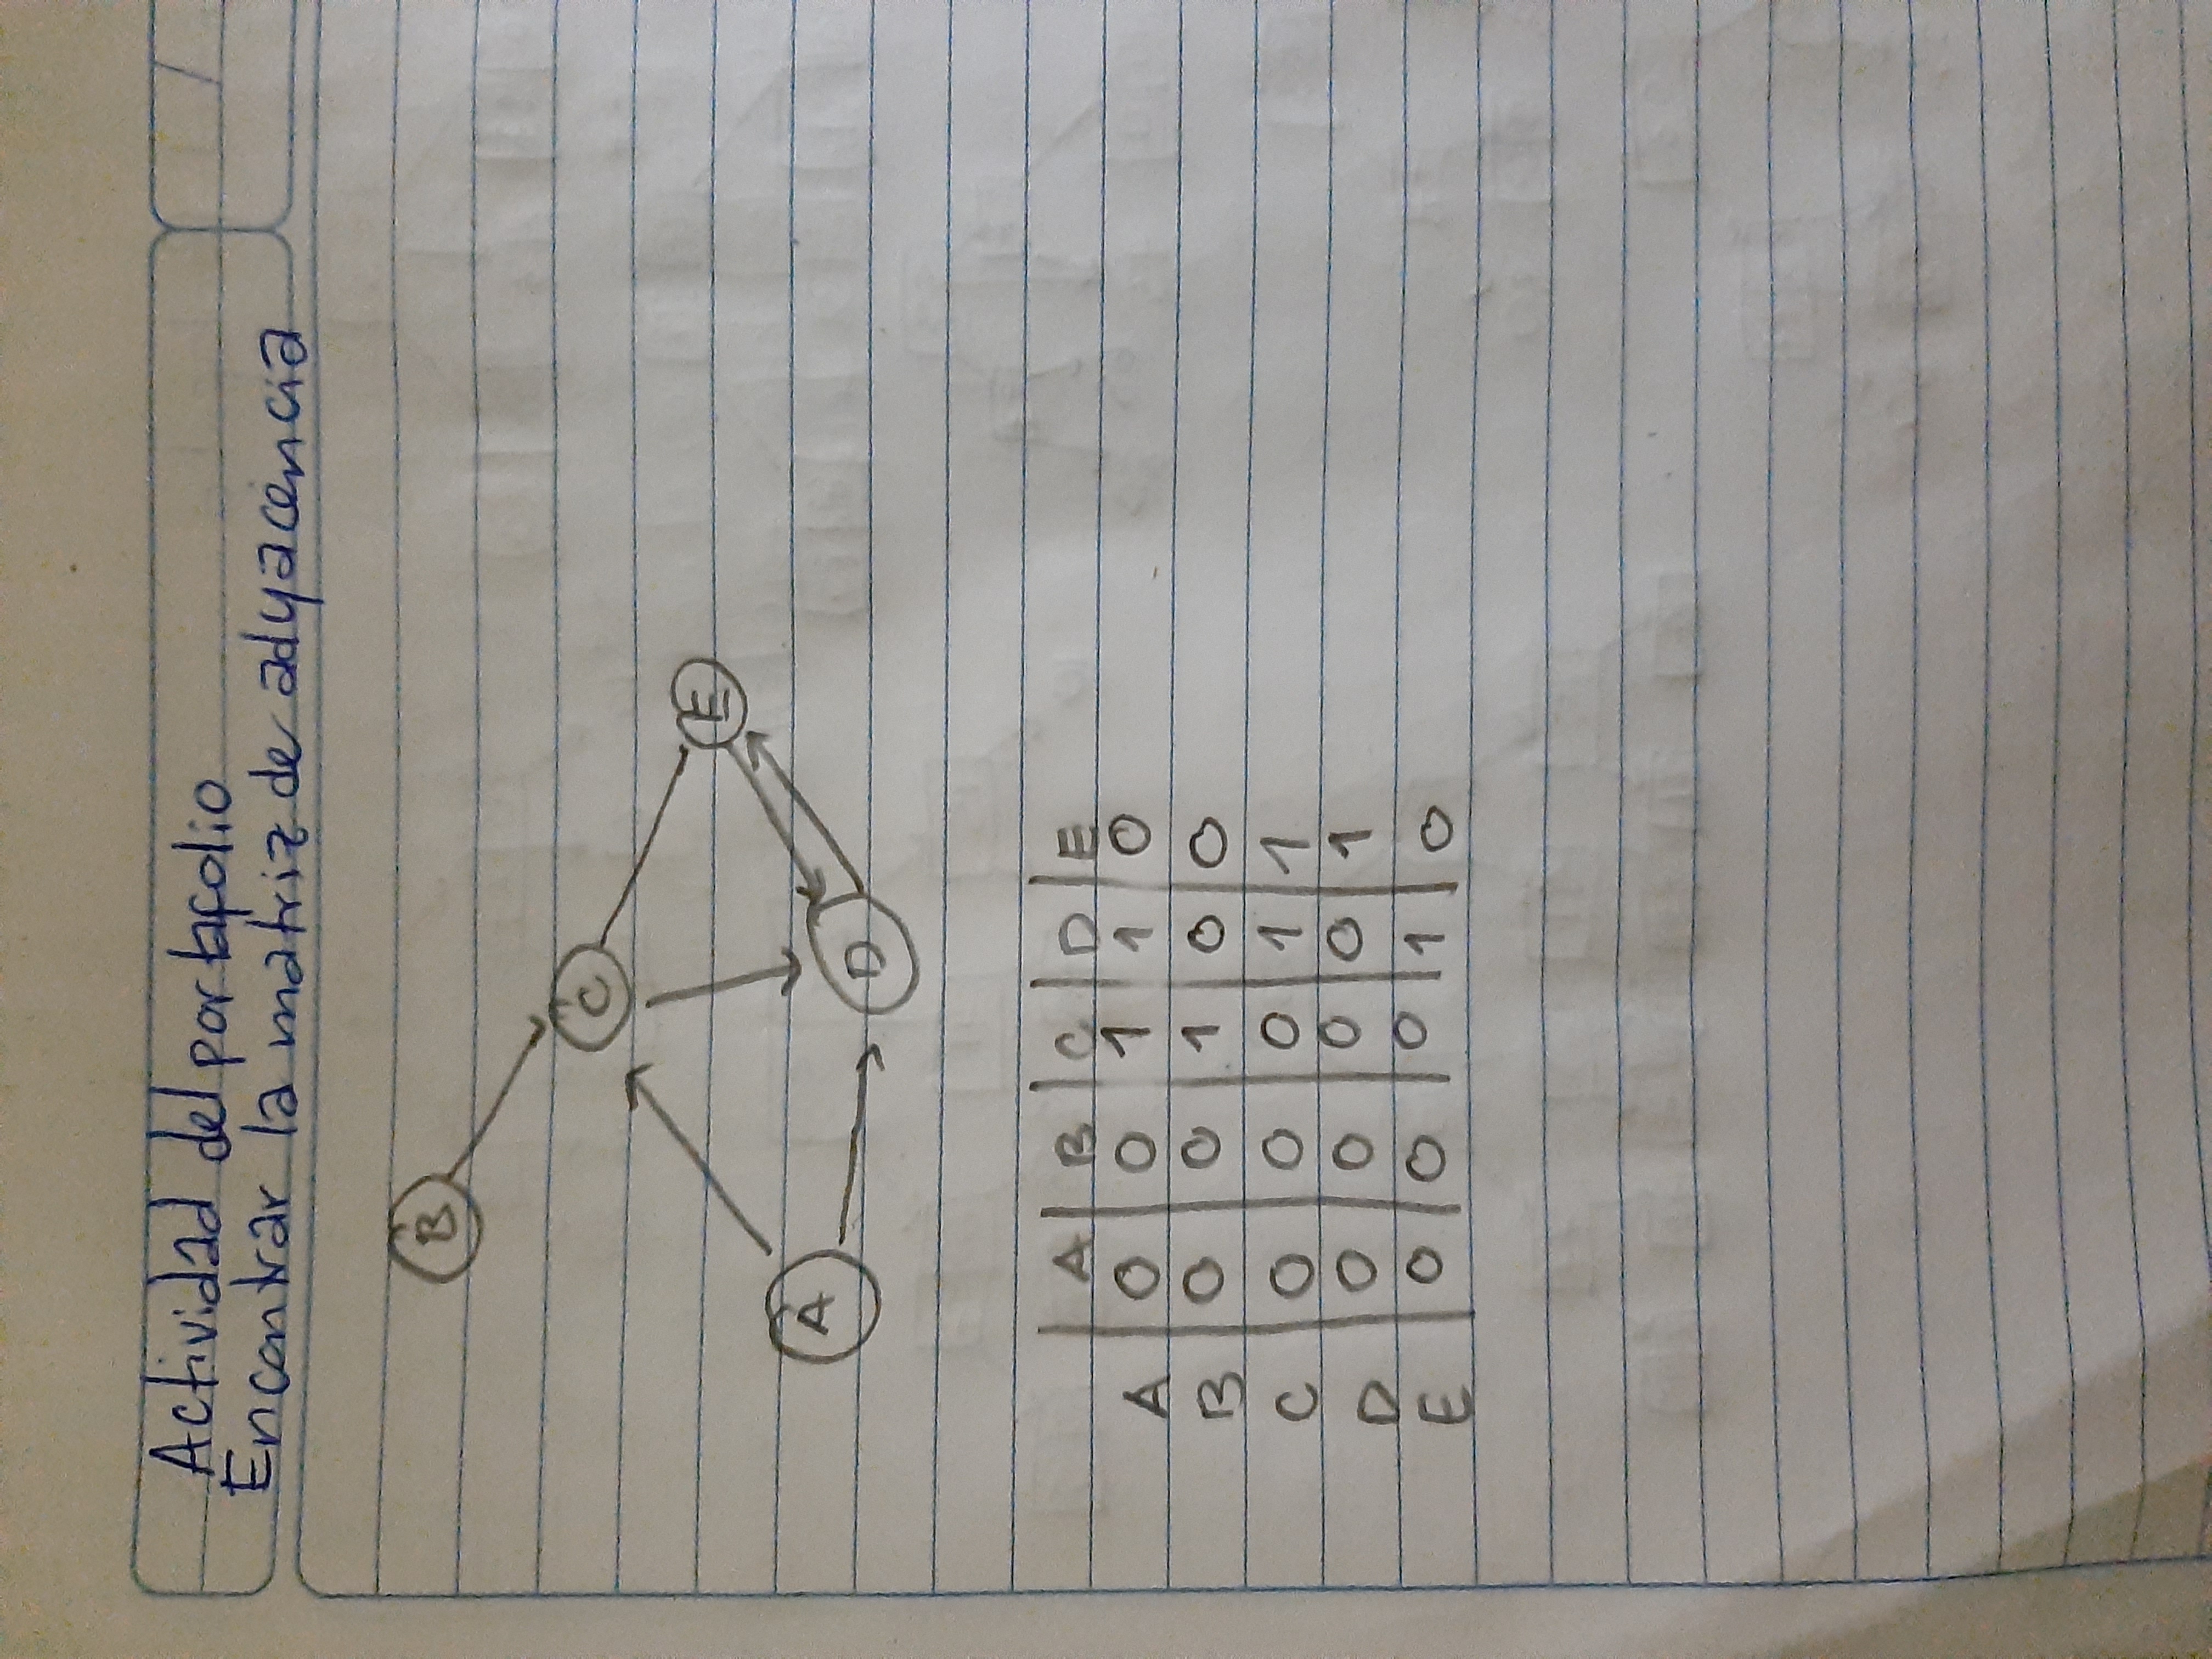 Actividad del portafolio
Encontrar la matriz de adyacencia
B
C
E
A
D
A B C D E
A 0 0 1 1 0
B 0 0 1 0 0
C 0 0 0 1 1
D 0 0 0 0 1
E 0 0 0 1 0